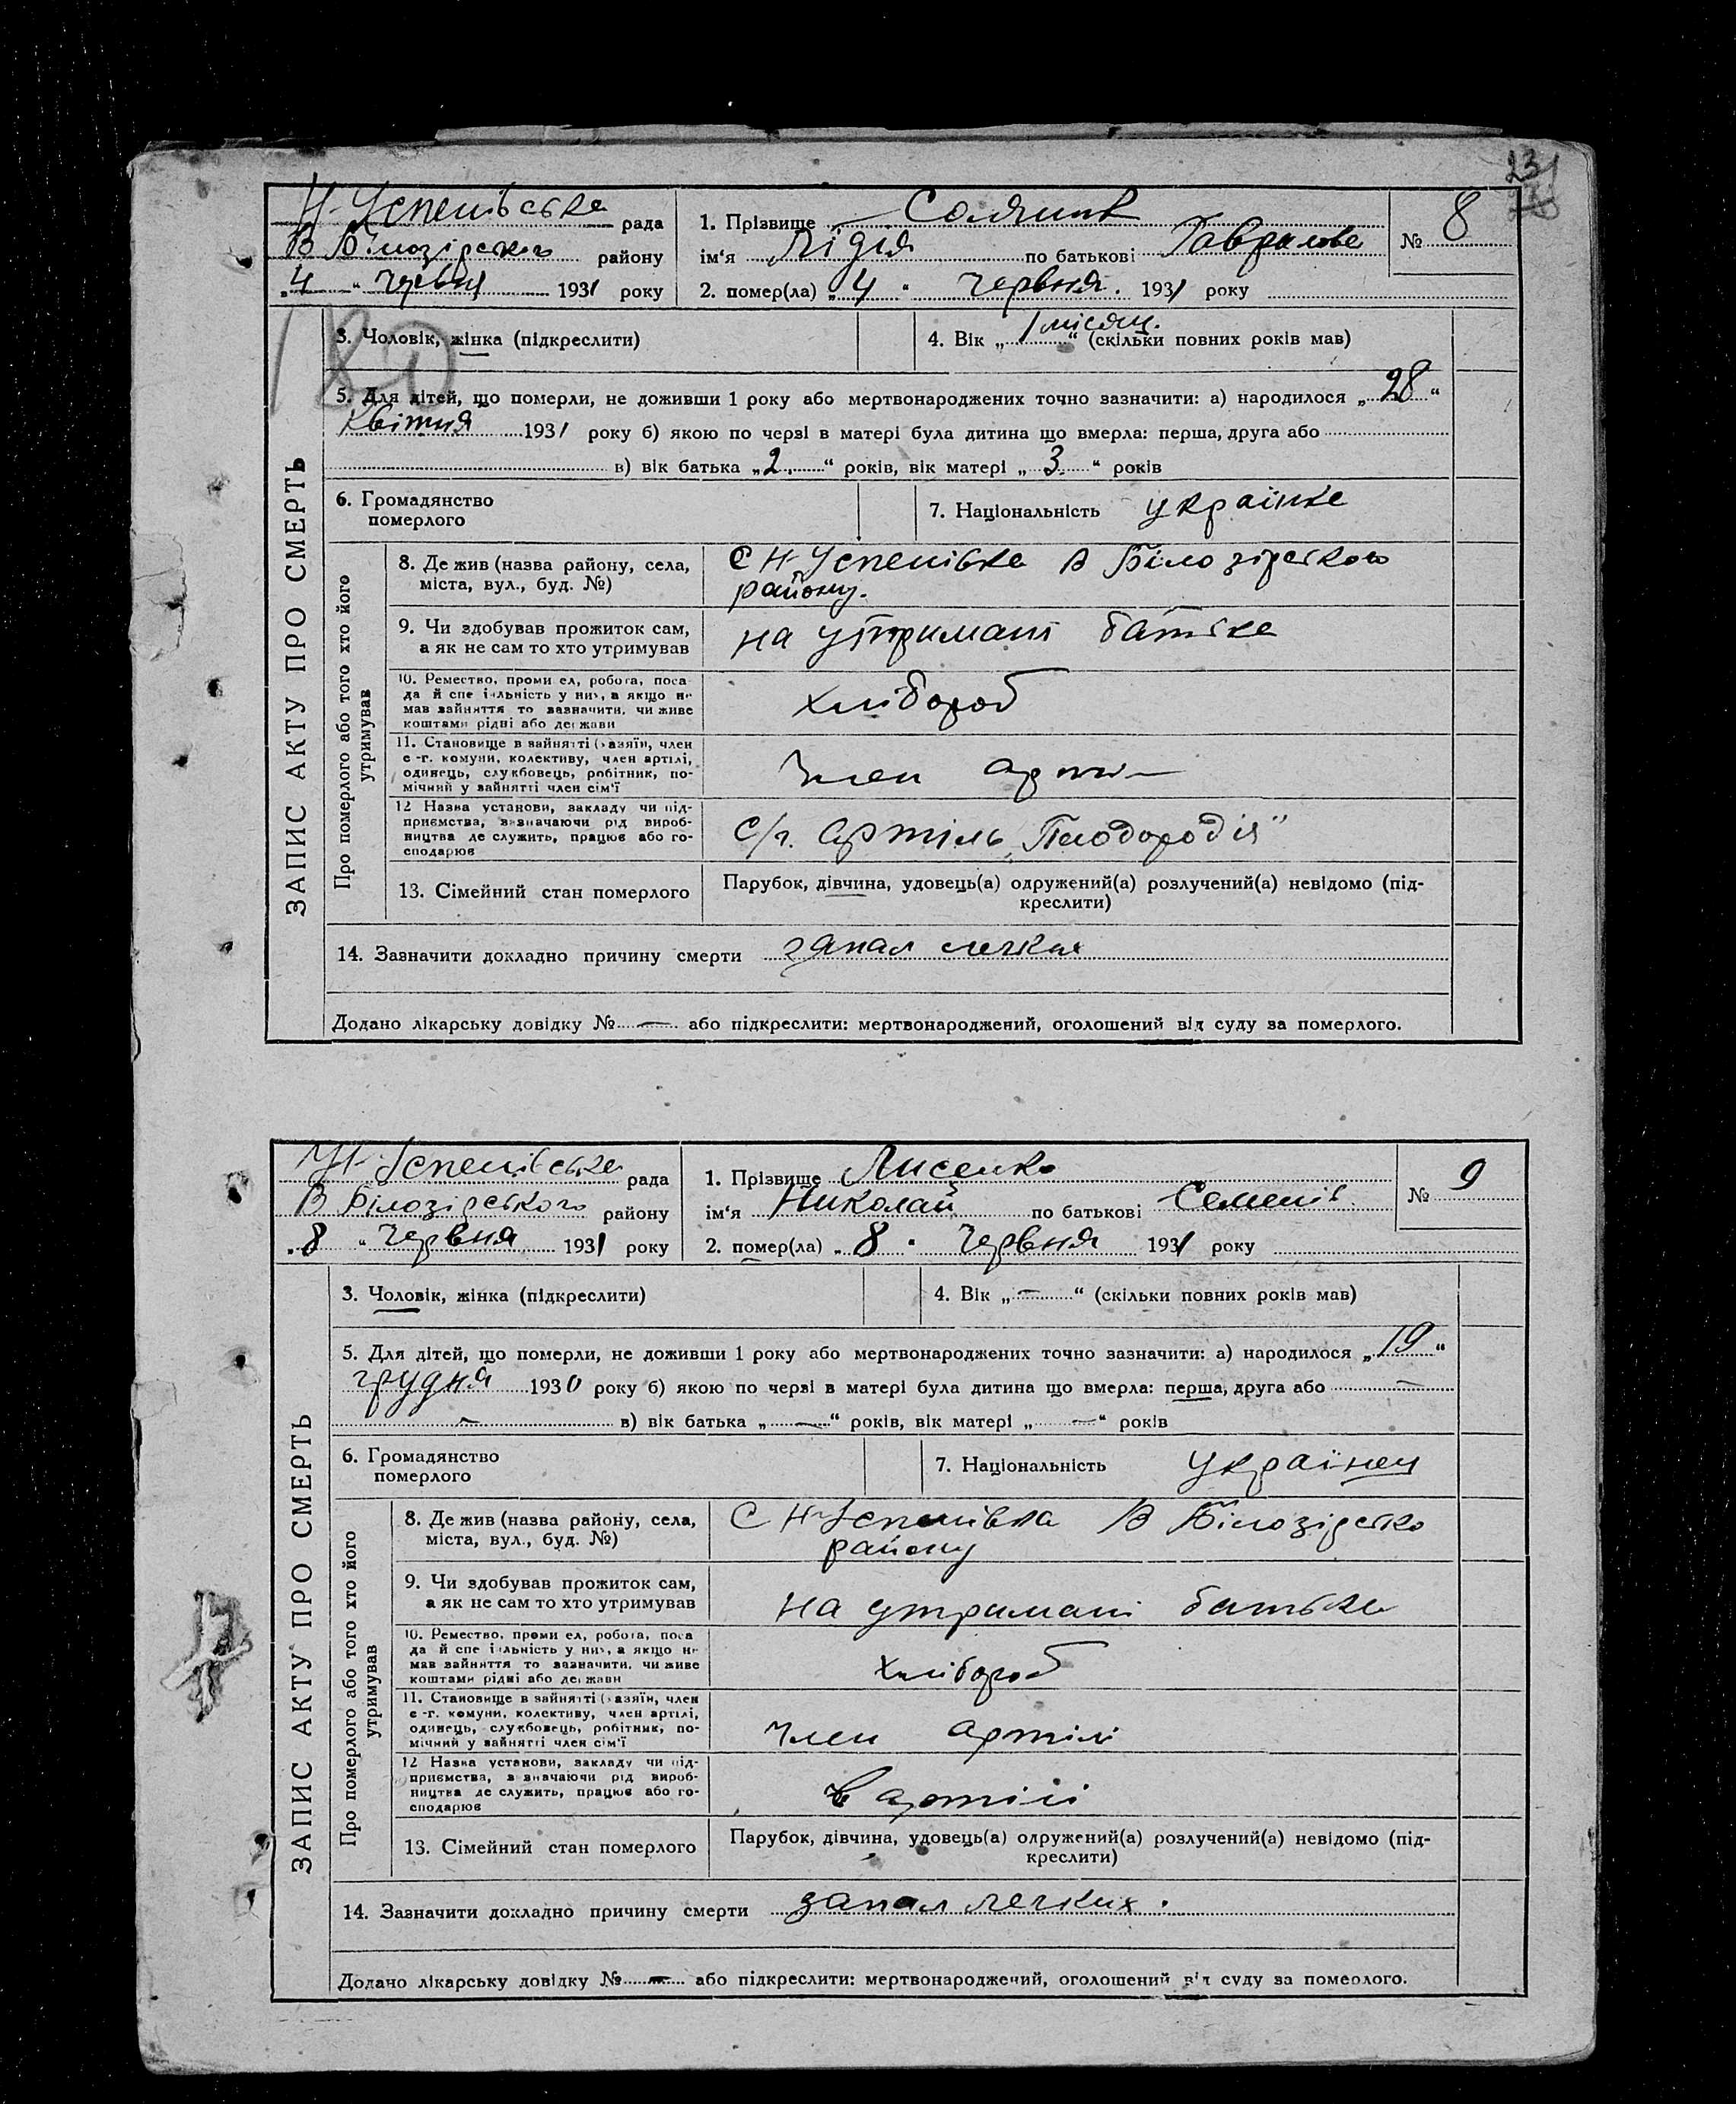 23
Н-Успенівська рада
В Білозірського району
„4“ Червня 1931 року
1. Прізвище Соляник
ім‘я Лідія по батькові Гаврилова
2. помер(ла) „4“ Червня. 1931 року
№ 8
180
ЗАПИС АКТУ ПРО СМЕРТЬ
3. Чоловік, жінка (підкреслити)
4. Вік „1 місяц.“ (скільки повних років мав)
5. Для дітей, що померли, не доживши 1 року або мертвонароджених точно зазначити: а) народилося „28“
Квітня 1931 року б) якою по черзі в матері була дитина що вмерла: перша, друга або
в) вік батька „2.“ років, вік матері „3.“ років
6. Громадянство
померлого
7. Національність українка
Про померлого або того хто його
утримував
8. Де жив (назва району, села,
міста, вул., буд. №)
С Н-Успенівка В Білозірського
району.
9. Чи здобував прожиток сам,
а як не сам то хто утримував
на утримані батька
10. Ремество, проми ел, робота, поса
да й спе і льність у них, а якщо не
мав зайняття то зазначити, чи живе
коштами рідні або держави
хлібороб
11. Становище в зайнятті (хазяїн, член
с-г. комуни, колективу, член артілі,
одинець, службовець, робітник, по-
мічний у зайнятті член сім'ї
Член
12 Назва установи, закладу чи під-
приємства, визначаючи рід вироб-
ництва де служить, працює або го-
сподарює
С/г. артіль „Плодородія“
13. Сімейний стан померлого
Парубок, дівчина, удовець(а) одружений(а) розлучений(а) невідомо (під-
креслити)
14. Зазначити докладно причину смерти запал
Додано лікарську довідку № — або підкреслити: мертвонароджений, оголошений від суду за померлого.
Н-Успенівська рада
В Білозірського району
„8“ Червня 1931 року
1. Прізвище Лисенко
ім‘я Николай по батькові Семенів
2. помер(ла) „8“ Червня 1931 року
№ 9
ЗАПИС АКТУ ПРО СМЕРТЬ
3. Чоловік, жінка (підкреслити)
4. Вік „—“ (скільки повних років мав)
5. Для дітей, що померли, не доживши 1 року або мертвонароджених точно зазначити: а) народилося „19“
грудня 1930 року б) якою по черзі в матері була дитина що вмерла: перша, друга або —
— в) вік батька „—“ років, вік матері „—“ років
6. Громадянство
померлого
7. Національність українец
Про померлого або того хто його
утримував
8. Де жив (назва району, села,
міста, вул., буд. №)
С Н-Успенівка В Білозірсько
району
9. Чи здобував прожиток сам,
а як не сам то хто утримував
на утримані батька
10. Ремество, проми ел, робота, поса
да й спе і льність у них, а якщо не
мав зайняття то зазначити, чи живе
коштами рідні або держави
хлібороб
11. Становище в зайнятті (хазяїн, член
с-г. комуни, колективу, член артілі,
одинець, службовець, робітник, по-
мічний у зайнятті член сім'ї
Член артілі
12 Назва установи, закладу чи під-
приємства, визначаючи рід вироб-
ництва де служить, працює або го-
сподарює
в артілі
13. Сімейний стан померлого
Парубок, дівчина, удовець(а) одружений(а) розлучений(а) невідомо (під-
креслити)
14. Зазначити докладно причину смерти запал легких.
Додано лікарську довідку № — або підкреслити: мертвонароджений, оголошений від суду за померлого.